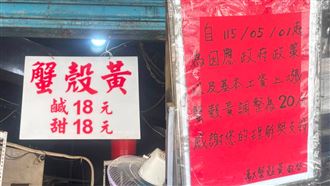 蟹殼黃
鹹18元
甜18元
自115/05/01起
為因應政府政策
以及基本工資上漲
蟹殼黃調整為20元
感謝您的理解與支持